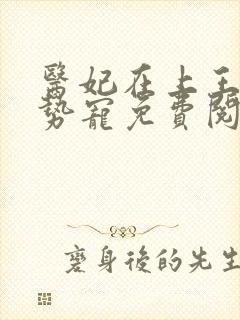 醫妃在上王
勢寵免費閱
褻身後的先生